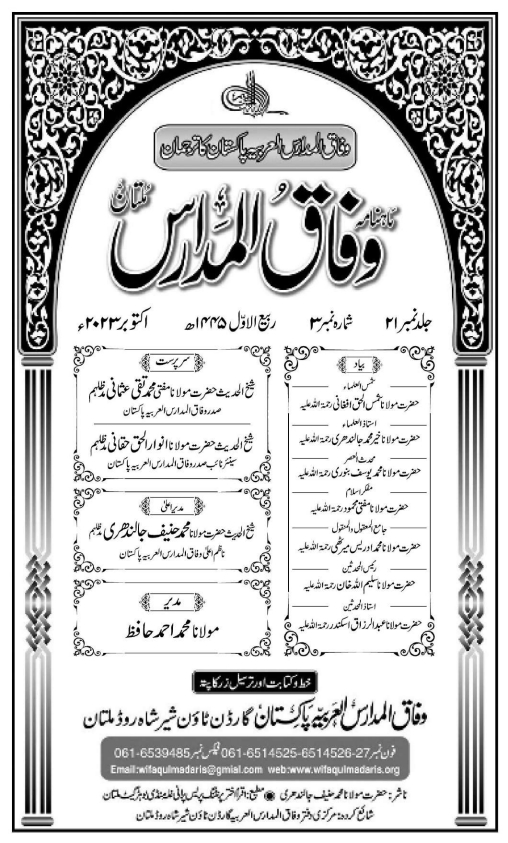 وفاق المدارس العربیہ پاکستان کا ترجمان
ماہنامہ
وفاق المدارس
ملتان
جلد نمبر ۲۱ شمارہ نمبر ۳ ربیع الاوّل ۱۴۴۵ھ اکتوبر ۲۰۲۳ء
بیاد
شمس العلماء
حضرت مولانا شمس الحق افغانی رحمۃ اللہ علیہ
استاذ العلماء
حضرت مولانا خیر محمد جالندھری رحمۃ اللہ علیہ
محدث العصر
حضرت مولانا محمد یوسف بنوری رحمۃ اللہ علیہ
مفکر اسلام
حضرت مولانا مفتی محمود رحمۃ اللہ علیہ
جامع المعقول والمنقول
حضرت مولانا محمد ادریس میرٹھی رحمۃ اللہ علیہ
رئیس المحدثین
حضرت مولانا سلیم اللہ خان رحمۃ اللہ علیہ
استاذ المحدثین
حضرت مولانا عبدالرزاق اسکندر رحمۃ اللہ علیہ
سرپرست
شیخ الحدیث حضرت مولانا مفتی محمد تقی عثمانی مدظلہم
صدر وفاق المدارس العربیہ پاکستان
شیخ الحدیث حضرت مولانا انوار الحق حقانی مدظلہم
سینئر نائب صدر وفاق المدارس العربیہ پاکستان
مدیر اعلیٰ
شیخ الحدیث حضرت مولانا محمد حنیف جالندھری مدظلہم
ناظم اعلیٰ وفاق المدارس العربیہ پاکستان
مدیر
مولانا محمد احمد حافظ
خط و کتابت اور ترسیل زر کا پتہ
وفاق المدارس العربیہ پاکستان گارڈن ٹاؤن شیر شاہ روڈ ملتان
فون نمبر 061-6514525-6514526-27 فیکس نمبر 061-6539485
Email:wifaqulmadaris@gmial.com web:www.wifaqulmadaris.org
ناشر: حضرت مولانا محمد حنیف جالندھری ● مطبع: اقرأ اختر پرنٹنگ پریس پرانی غلہ منڈی بوہڑ گیٹ ملتان
شائع کردہ: مرکزی دفتر وفاق المدارس العربیہ گارڈن ٹاؤن شیر شاہ روڈ ملتان